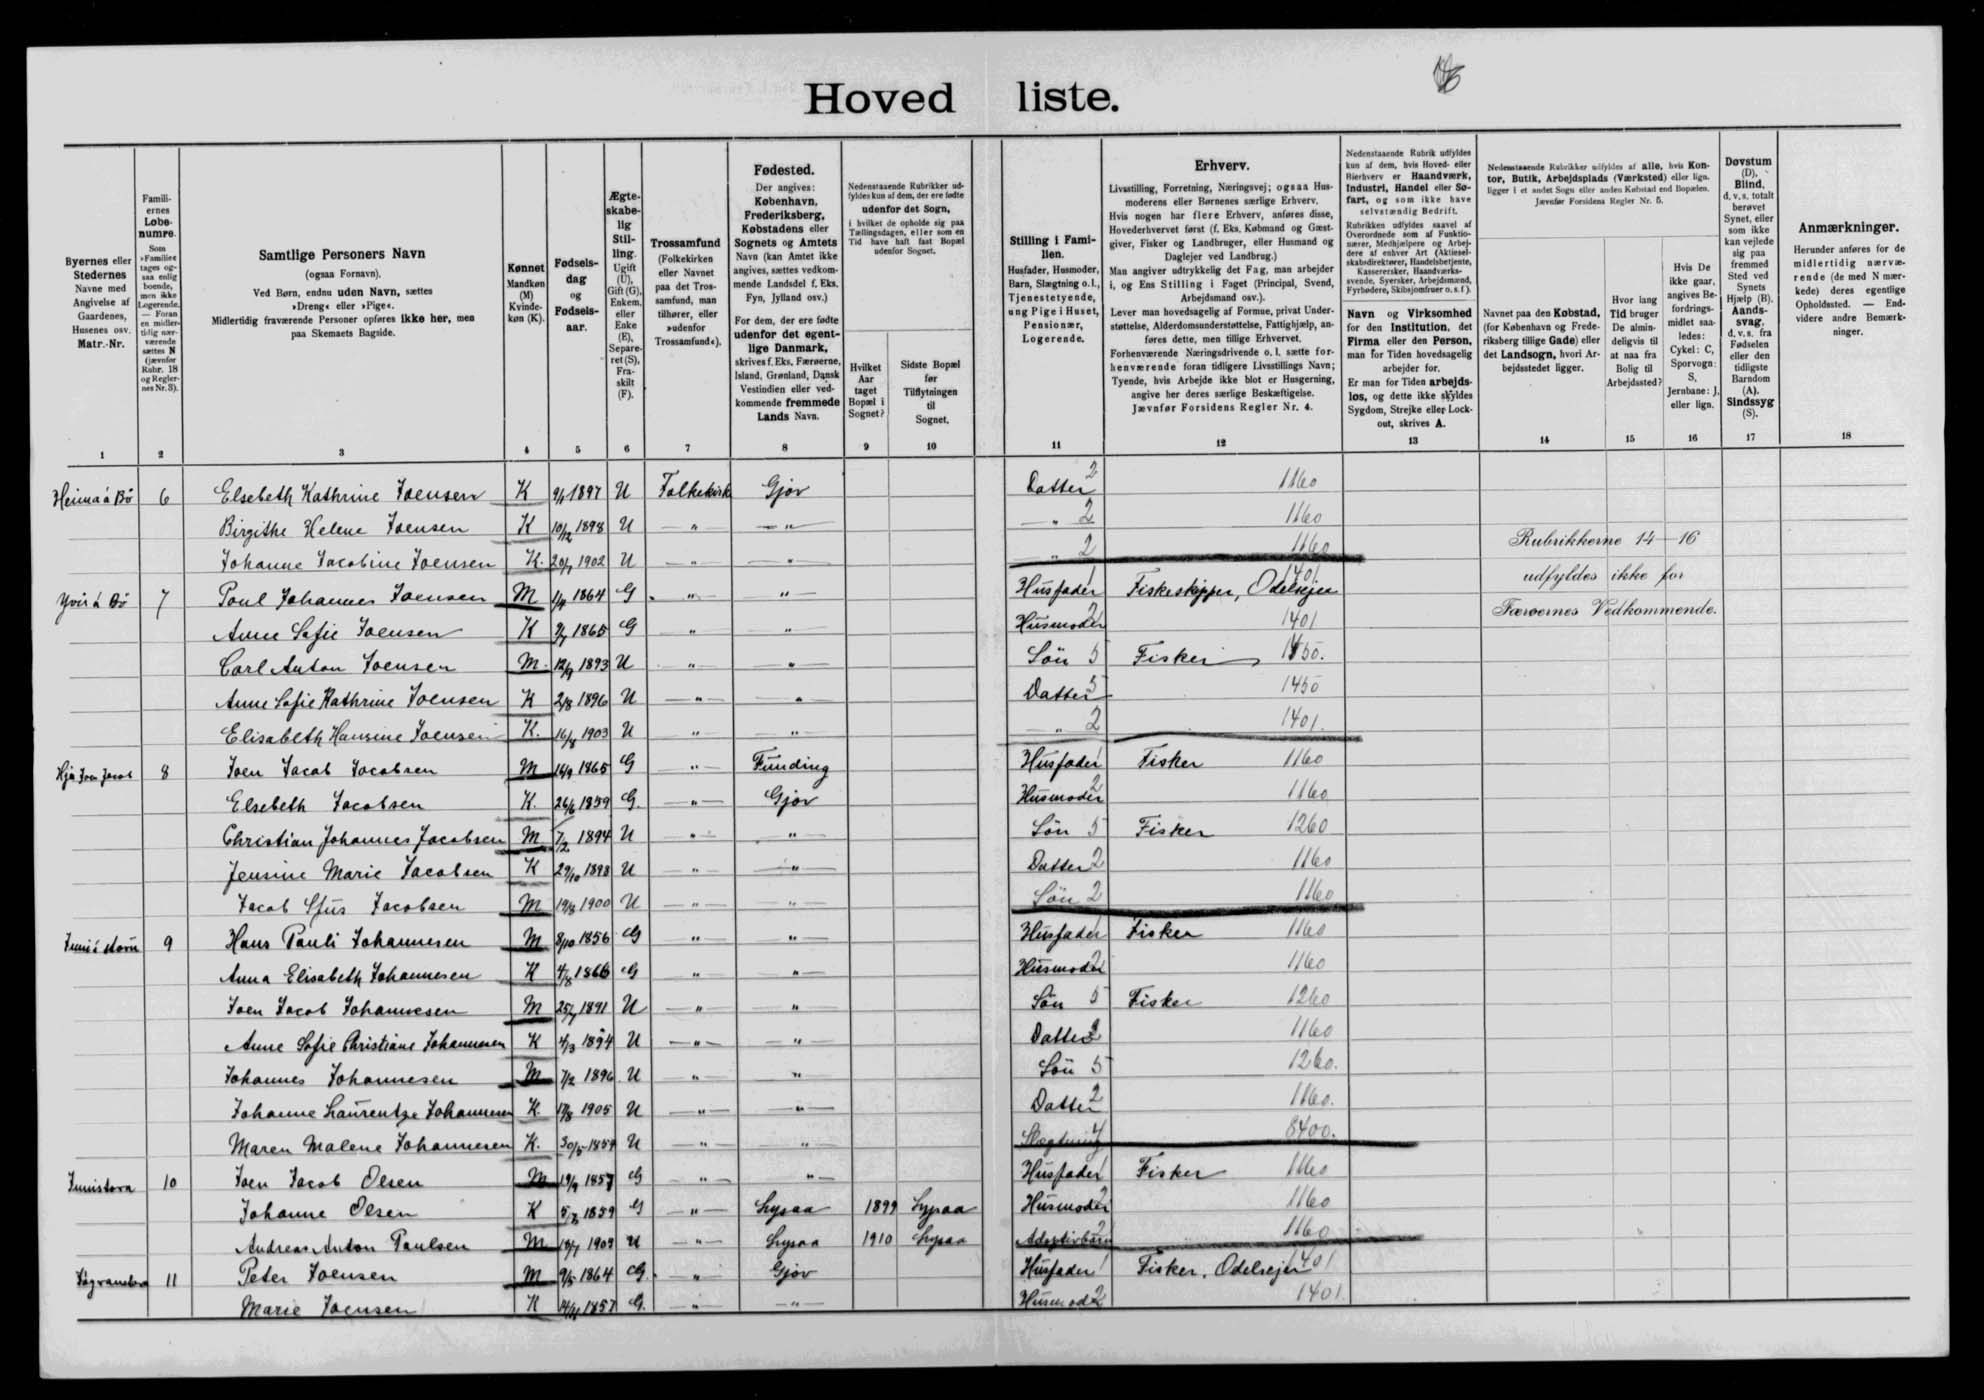 Hoved liste.
Byernes eller Stedernes Navne med Angivelse af Gaardenes, Husenes osv. Matr.-Nr.
Familiernes Løbenumre. Som »Familie« tages ogsaa enlig boende, men ikke Logerende. — Foran en midlertidig nærværende sættes N (jævnfør Rubr. 18 og Reglernes Nr. 3).
Samtlige Personers Navn (ogsaa Fornavn). Ved Børn, endnu uden Navn, sættes »Dreng« eller »Pige«. Midlertidig fraværende Personer opføres ikke her, men paa Skemaets Bagside.
Kønnet Mandkøn (M) Kvindekøn (K).
Fødselsdag og Fødselsaar.
Ægteskabelig Stilling. Ugift (U), Gift (G), Enkem. eller Enke (E), Separeret (S), Fraskilt (F).
Trossamfund (Folkekirken eller Navnet paa det Trossamfund, man tilhører, eller »udenfor Trossamfund«).
Fødested. Der angives: København, Frederiksberg, Købstadens eller Sognets og Amtets Navn (kan Amtet ikke angives, sættes vedkommende Landsdel f. Eks. Fyn, Jylland osv.) For dem, der ere fødte udenfor det egentlige Danmark, skrives f. Eks. Færøerne, Island, Grønland, Dansk Vestindien eller vedkommende fremmede Lands Navn.
Nedenstaaende Rubrikker udfyldes kun af dem, der ere fødte udenfor det Sogn, i hvilket de opholde sig paa Tællingsdagen, eller som en Tid have haft fast Bopæl udenfor Sognet.
Hvilket Aar taget Bopæl i Sognet?
Sidste Bopæl før Tilflytningen til Sognet.
Stilling i Familien. Husfader, Husmoder, Barn, Slægtning o. l., Tjenestetyende, ung Pige i Huset, Pensionær, Logerende.
Erhverv. Livsstilling, Forretning, Næringsvej; ogsaa Husmoderens eller Børnenes særlige Erhverv. Hvis nogen har flere Erhverv, anføres disse, Hovederhvervet først (f. Eks. Købmand og Gæstgiver, Fisker og Landbruger, eller Husmand og Daglejer ved Landbrug.) Man angiver udtrykkelig det Fag, man arbejder i, og Ens Stilling i Faget (Principal, Svend, Arbejdsmand osv.). Lever man hovedsagelig af Formue, privat Understøttelse, Alderdomsunderstøttelse, Fattighjælp, anføres dette, men tillige Erhvervet. Forhenværende Næringsdrivende o. l. sætte forhenværende foran tidligere Livsstillings Navn; Tyende, hvis Arbejde ikke blot er Husgerning, angive her deres særlige Beskæftigelse. Jævnfør Forsidens Regler Nr. 4.
Nedenstaaende Rubrik udfyldes kun af dem, hvis Hoved- eller Bierhverv er Haandværk, Industri, Handel eller Søfart, og som ikke have selvstændig Bedrift. Rubrikken udfyldes saavel af Overordnede som af Funktionærer, Medhjælpere og Arbejdere af enhver Art (Aktieselskabsdirektører, Handelsbetjente, Kasserersker, Haandværkssvende, Syersker, Arbejdsmænd, Fyrbødere, Skibsjomfruer o. s. f.).
Navn og Virksomhed for den Institution, det Firma eller den Person, man for Tiden hovedsagelig arbejder for. Er man for Tiden arbejdsløs, og dette ikke skyldes Sygdom, Strejke eller Lockout, skrives A.
Nedenstaaende Rubrikker udfyldes af alle, hvis Kontor, Butik, Arbejdsplads (Værksted) eller lign. ligger i et andet Sogn eller anden Købstad end Bopælen. Jævnfør Forsidens Regler Nr. 5.
Navnet paa den Købstad, (for København og Frederiksberg tillige Gade) eller det Landsogn, hvori Arbejdsstedet ligger.
Hvor lang Tid bruger De almindeligvis til at naa fra Bolig til Arbejdssted?
Hvis De ikke gaar, angives Befordringsmidlet saaledes: Cykel: C, Sporvogn: S, Jernbane: J, eller lign.
Døvstum (D). Blind, d. v. s. totalt berøvet Synet, eller som ikke kan vejlede sig paa fremmed Sted ved Synets Hjælp (B). Aandssvag, d. v. s. fra Fødselen eller den tidligste Barndom (A). Sindssyg (S).
Anmærkninger. Herunder anføres for de midlertidig nærværende (de med N mærkede) deres egentlige Opholdssted. — Endvidere andre Bemærkninger.
1 2 3 4 5 6 7 8 9 10 11 12 13 14 15 16 17 18
Heima á Bö 6 Elsebeth Kathrine Joensen K 9/1 1897 U Folkekirk Gjov Datter 2 1160
Birgithe Helene Joensen K 10/12 1898 U — " — — " — — " 2 1160
Johanne Jacobine Joensen K. 20/1 1902 U — " — — " — — " 2 1160 Rubrikkerne 14—16
Yvir á Bö 7 Poul Johannes Joensen M 1/4 1864 G " — — " — Husfader 1 Fiskeskipper, Odelsejer 1401 udfyldes ikke for
Anne Sofie Joensen K 1865 G " " Husmoder 2 1401 Færøernes Vedkommende.
Carl Anton Joensen M. 12/9 1893 U " " Sön 5 Fisker 1450.
Anne Sofie Kathrine Joensen K 2/8 1896 U — " — " Datter 5 1450
Elisabeth Hansine Joensen K. 16/8 1903 U " " — " 2 1401.
Hjá Joen Jacob 8 Joen Jacob Jacobsen M 16/9 1865 G " Funding Husfader 1 Fisker 1160
Elsebeth Jacobsen K. 26/6 1859 G. — " — Gjov Husmoder 2 1160
Christian Johannes Jacobsen M 7/2 1894 U " " Sön 5 Fisker 1260
Jensine Marie Jacobsen K 29/10 1898 U — " — " Datter 2 1160
Jacob Jacobsen M 19/8 1900 U — " — " Sön 2 1160
9 Hans Pauli Johannesen M 8/10 1856 G — " — " Husfader 1 Fisker 1160
Anna Elisabeth Johannesen K 4/8 1866 G " " Husmoder 2 1160
Joen Jacob Johannesen M 25/7 1891 U — " — " Sön 5 Fisker 1260
Anne Sofie Christiane Johannesen K 4/3 1894 U — " — — " — Datter 2 1160
Johannes Johannesen M 7/2 1896 U " " Sön 5 1260.
Johanne Laurentze Johannesen K. 17/8 1905 U — " — — " — Datter 2 1160.
Maren Malene Johannesen K. 30/5 1859 U " " Slægtning 4 8400.
Innistova 10 Joen Jacob Olsen M 19/9 1857 G " " Husfader 1 Fisker 1160
Johanne Olsen K 1859 G — " — Lysaa 1899 Lysaa Husmoder 2 1160
Andreas Anton Poulsen M 1909 U — " — Lysaa 1910 Lysaa Adoptivbarn 2 1160
11 Peter Joensen M 9/5 1864 G. " Gjov Husfader 1 Fisker. Odelsejer 1401
Marie Joensen K 1857 G. — " — — " — Husmod 2 1401.